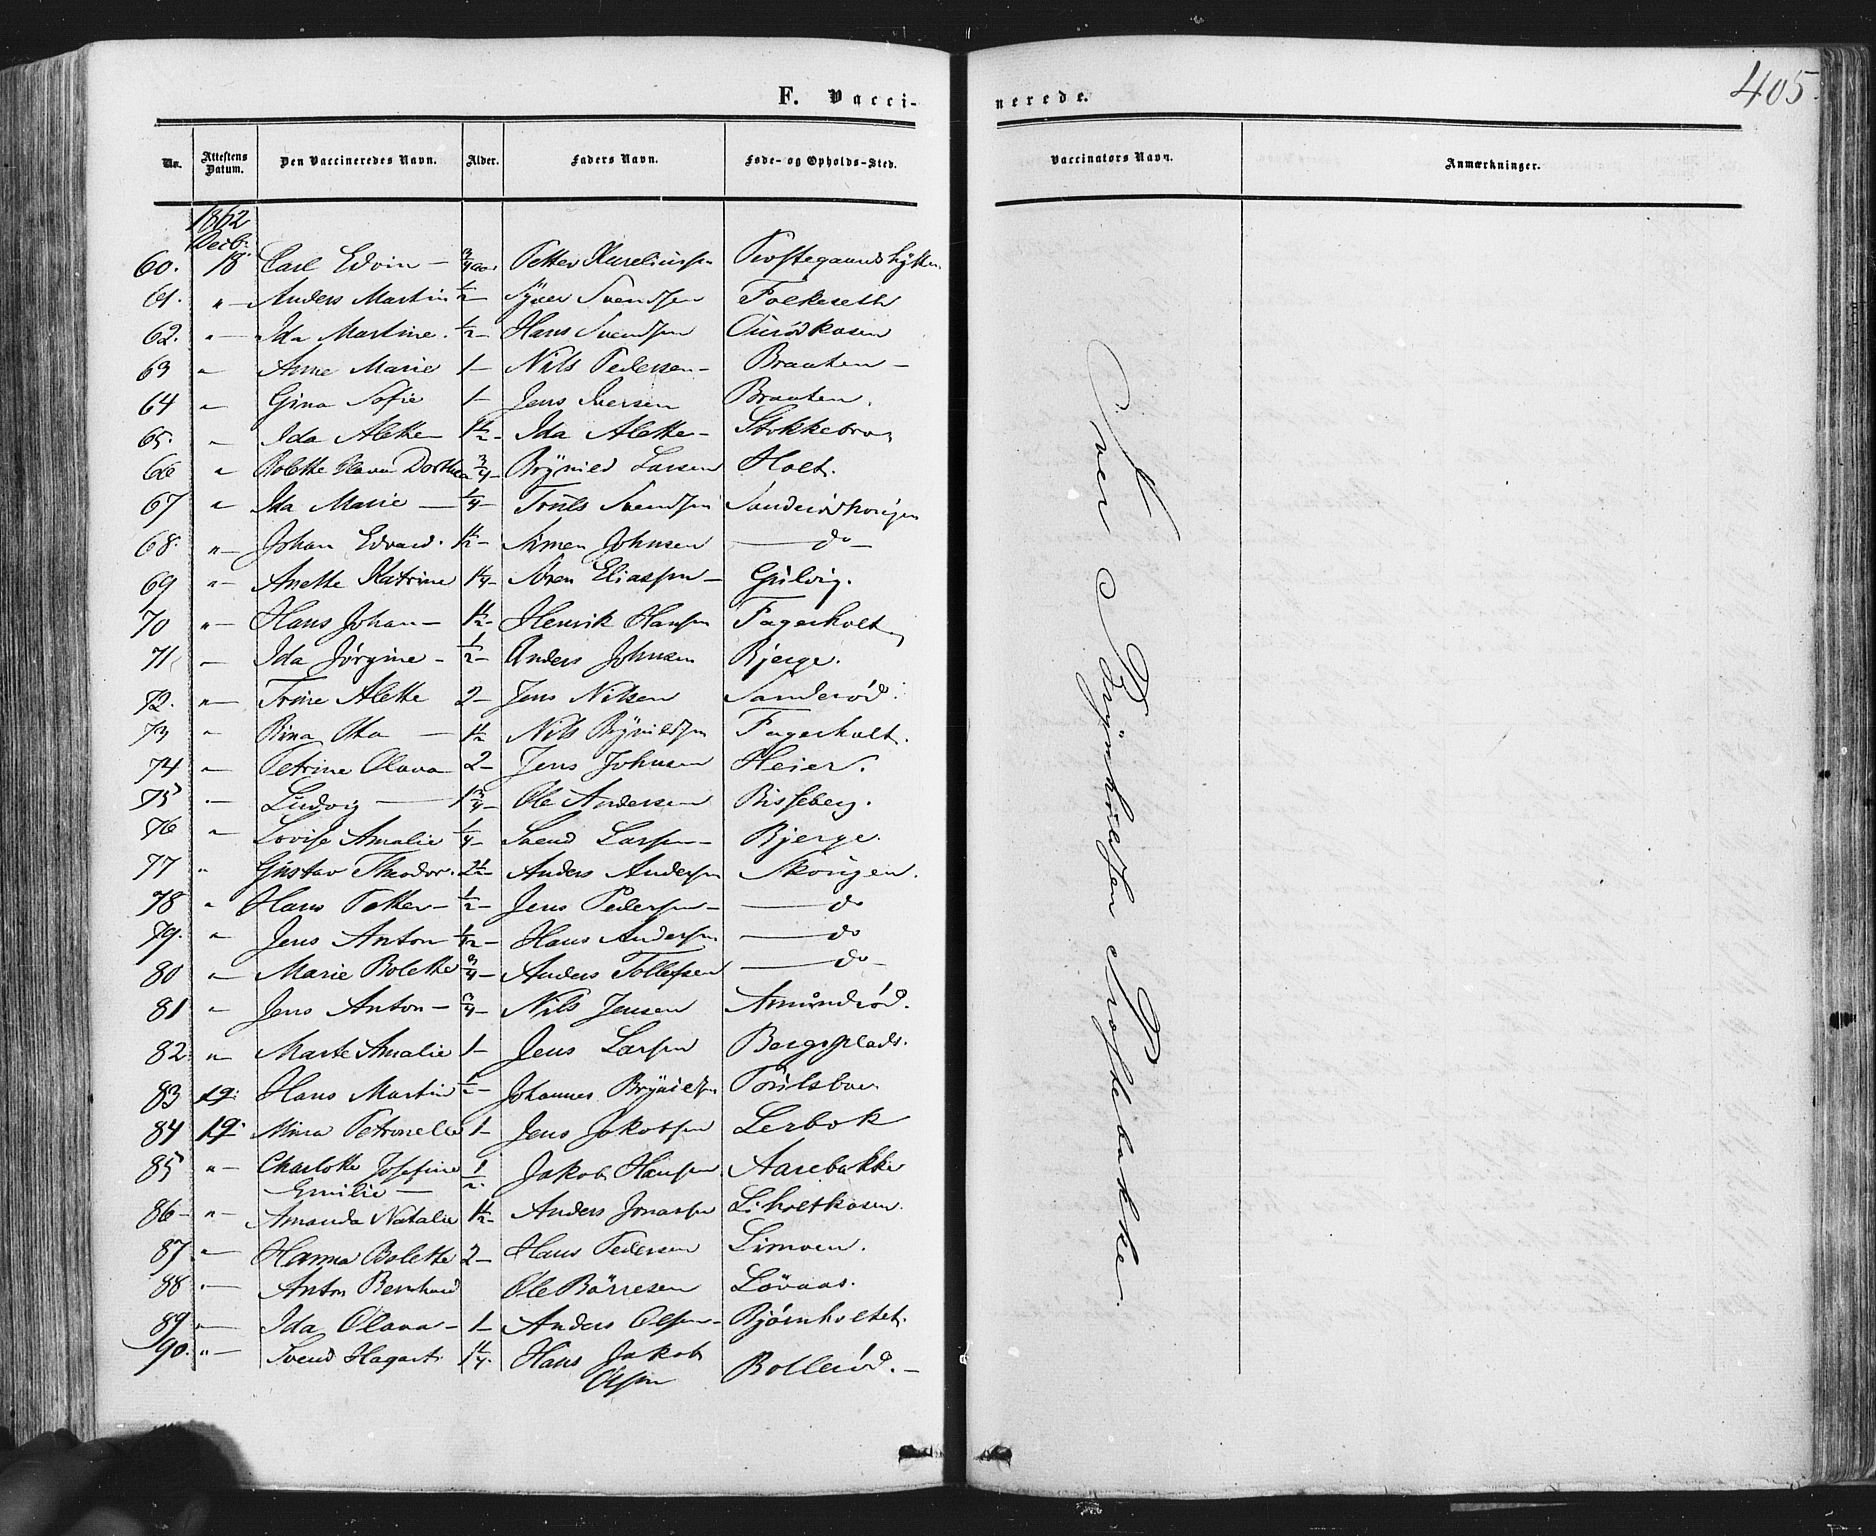 405.
F. Vacci-
nerede.
Nr. Attestens Datum. Den Vaccineredes Navn. Alder. Faders Navn. Føde- og Opholds-Sted. Vaccinators Navn. Anmærkninger.
1862
Decb:
60. 18 Carl Edvin — 3/4 aar. Petter
61. " Anders Martin 1/2 — Syver Svendsen Folkeseth
62. " Ida Martine. 1/2 — Hans Svendsen
63 " Anne Marie 1 — Nils Pedersen — Braaten —
64 " Gina Sofie 1 — Jens Iversen Braaten.
65. " Ida Alette 1 1/2 — Ida Alette — Stokkebro
66 " Bolette Dorthea 3/4 — Brynild Larsen Holt.
67 " Ida Marie — 1/4 — Truls Svendsen
68. " Johan Edvard. 1 1/2 — Simen Johnsen — do —
69 " Anette Katrine 1 1/4 — Sören Eliassen — Gulvig.
70 " Hans Johan — 1 1/2 — Henrik Hansen Fagerholt
71 " Ida Jørgine — 1/2 — Anders Johnsen Bjerge.
72. " Trine Alette 2 — Jens Nilsen Sanderød.
73 " — 1 1/2 Nils Brynildsen Fagerholt.
74 " Petrine Olava 2 — Jens Johnsen Heier.
75 " Ludvig — 1 3/4 — Ole Andersen Bisseberg.
76 " Lovise Amalie 1/4 — Svend Larsen — Bjerge.
77 " Gustav Theodor. 2 1/2 — Anders Andersen Skougen.
78 " Hans Petter — 1/2 — Jens Pedersen — do
79. " Jens Anton 1/12 — Hans Andersen — do
80 " Marie Bolette 3/4 — Anders Tollefsen — do —
81 " Jens Anton — 3/4 — Nils Jensen Amundrød.
82. " Marte Amalie 1 — Jens Larsen Bergsplads.
83 19. Hans Martin 1/2 — Johannes Brynildsen
84 19. Mina Petronelle 1 — Jens Jakobsen Lerbok
85 " Charlotte Josefine 1/2. Jakob Hansen. Aarebakke
Emilie —
86 — " Amanda Natalie 1 1/2 — Anders Jonassen Liholtkasen.
87. " Hanna Bolette 2 — Hans Pedersen Limoen.
88 " Anton Bernhard Ole Börresen Lövaas.
89 " Ida Olava — 1 — Anders Olsen — Bjørnholtet.
90. " Svend Hagart. 1 1/4. Hans Jakob Bollerød. —
Olsen
Iver Brynhildsen Prestebakke.